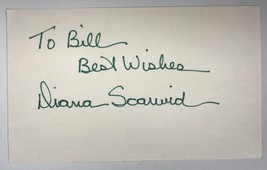 To Bill
Best Wishes
Diana Scarwid